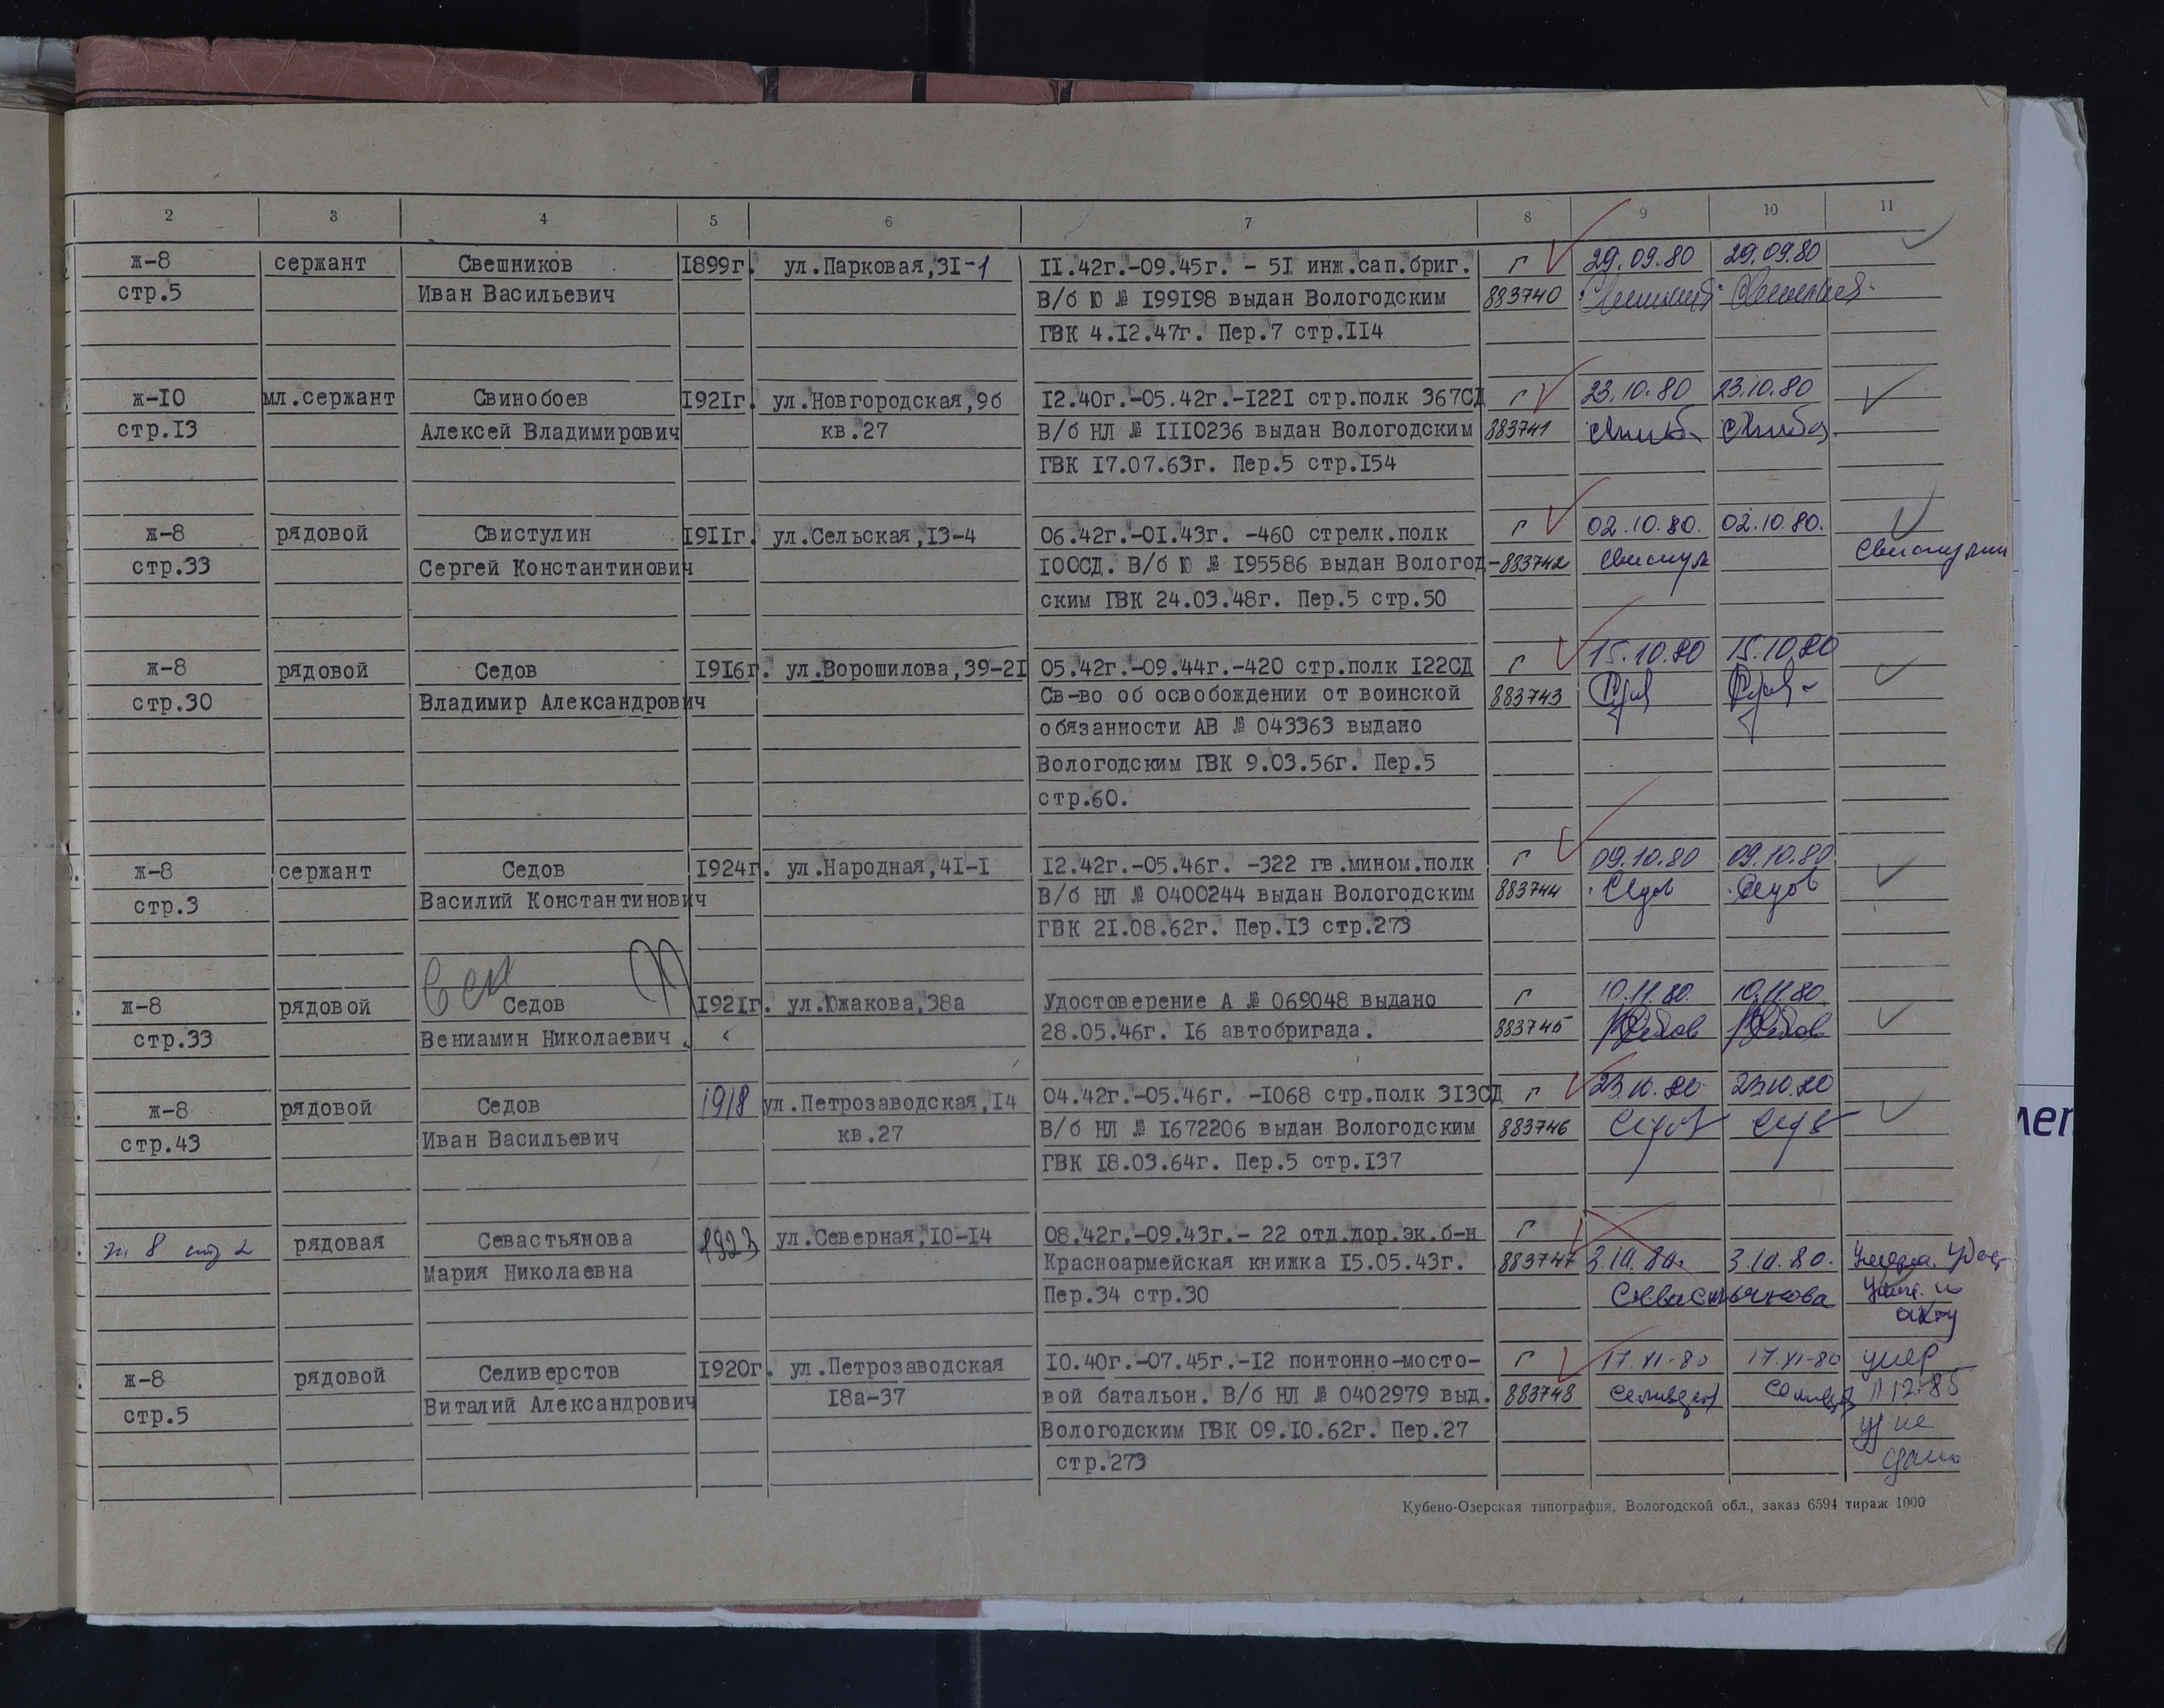 2 3 4 5 6 7 8 9 10 11
ж-8 сержант Свешников 1899г. ул.Парковая,31-1 11.42г.-09.45г. - 51 инж.сап.бриг. г 29.09.80 29.09.80
стр.5 Иван Васильевич В/б Ю № 199198 выдан Вологодским 883740
ГВК 4.12.47г. Пер.7 стр.114
ж-10 мл.сержант Свинобоев 1921г. ул.Новгородская,9б 12.40г.-05.42г.-1221 стр.полк 367СД г 23.10.80 23.10.80
стр.13 Алексей Владимирович кв.27 В/б НЛ № 1110236 выдан Вологодским 883741
ГВК 17.07.63г. Пер.5 стр.154
ж-8 рядовой Свистулин 1911г. ул.Сельская,13-4 06.42г.-01.43г. -460 стрелк.полк г 02.10.80. 02.10.80.
стр.33 Сергей Константинович 100СД. В/б Ю № 195586 выдан Вологод- 883742 Свистул Свистулин
ским ГВК 24.03.48г. Пер.5 стр.50
ж-8 рядовой Седов 1916г. ул.Ворошилова,39-21 05.42г.-09.44г.-420 стр.полк 122СД г 15.10.80 15.10.80
стр.30 Владимир Александрович Св-во об освобождении от воинской 883743
обязанности АВ № 043363 выдано
Вологодским ГВК 9.03.56г. Пер.5
стр.60.
ж-8 сержант Седов 1924г. ул.Народная,41-1 12.42г.-05.46г. -322 гв.мином.полк г 09.10.80 09.10.80
стр.3 Василий Константинович В/б НЛ № 0400244 выдан Вологодским 883744 Седов Седов
ГВК 21.08.62г. Пер.13 стр.273
ж-8 рядовой Седов 1921г. ул.Южакова,38а Удостоверение А № 069048 выдано г 10.11.80. 10.11.80.
стр.33 Вениамин Николаевич 28.05.46г. 16 автобригада. 883745 Седов Седов
ж-8 рядовой Седов 1918 ул.Петрозаводская,14 04.42г.-05.46г. -1068 стр.полк 313СД г 23.10.80 23.10.80
стр.43 Иван Васильевич кв.27 В/б НЛ № 1672206 выдан Вологодским 883746 Седов
ГВК 18.03.64г. Пер.5 стр.137
ж 8 стр 2 рядовая Севастьянова 1923 ул.Северная,10-14 08.42г.-09.43г.- 22 отд.дор.эк.б-н г
Мария Николаевна Красноармейская книжка 15.05.43г. 883747 3.10.80. 3.10.80. Умерла.
Пер.34 стр.30 Севастьянова по
акту
ж-8 рядовой Селиверстов 1920г. ул.Петрозаводская 10.40г.-07.45г.-12 понтонно-мосто- г 17.XI-80 17.XI-80 умер
стр.5 Виталий Александрович 18а-37 вой батальон. В/б НЛ № 0402979 выд. 883748 12.85
Вологодским ГВК 09.10.62г. Пер.27 уд не
стр.273 сдано
Кубено-Озерская типография, Вологодской обл., заказ 6594 тираж 1000